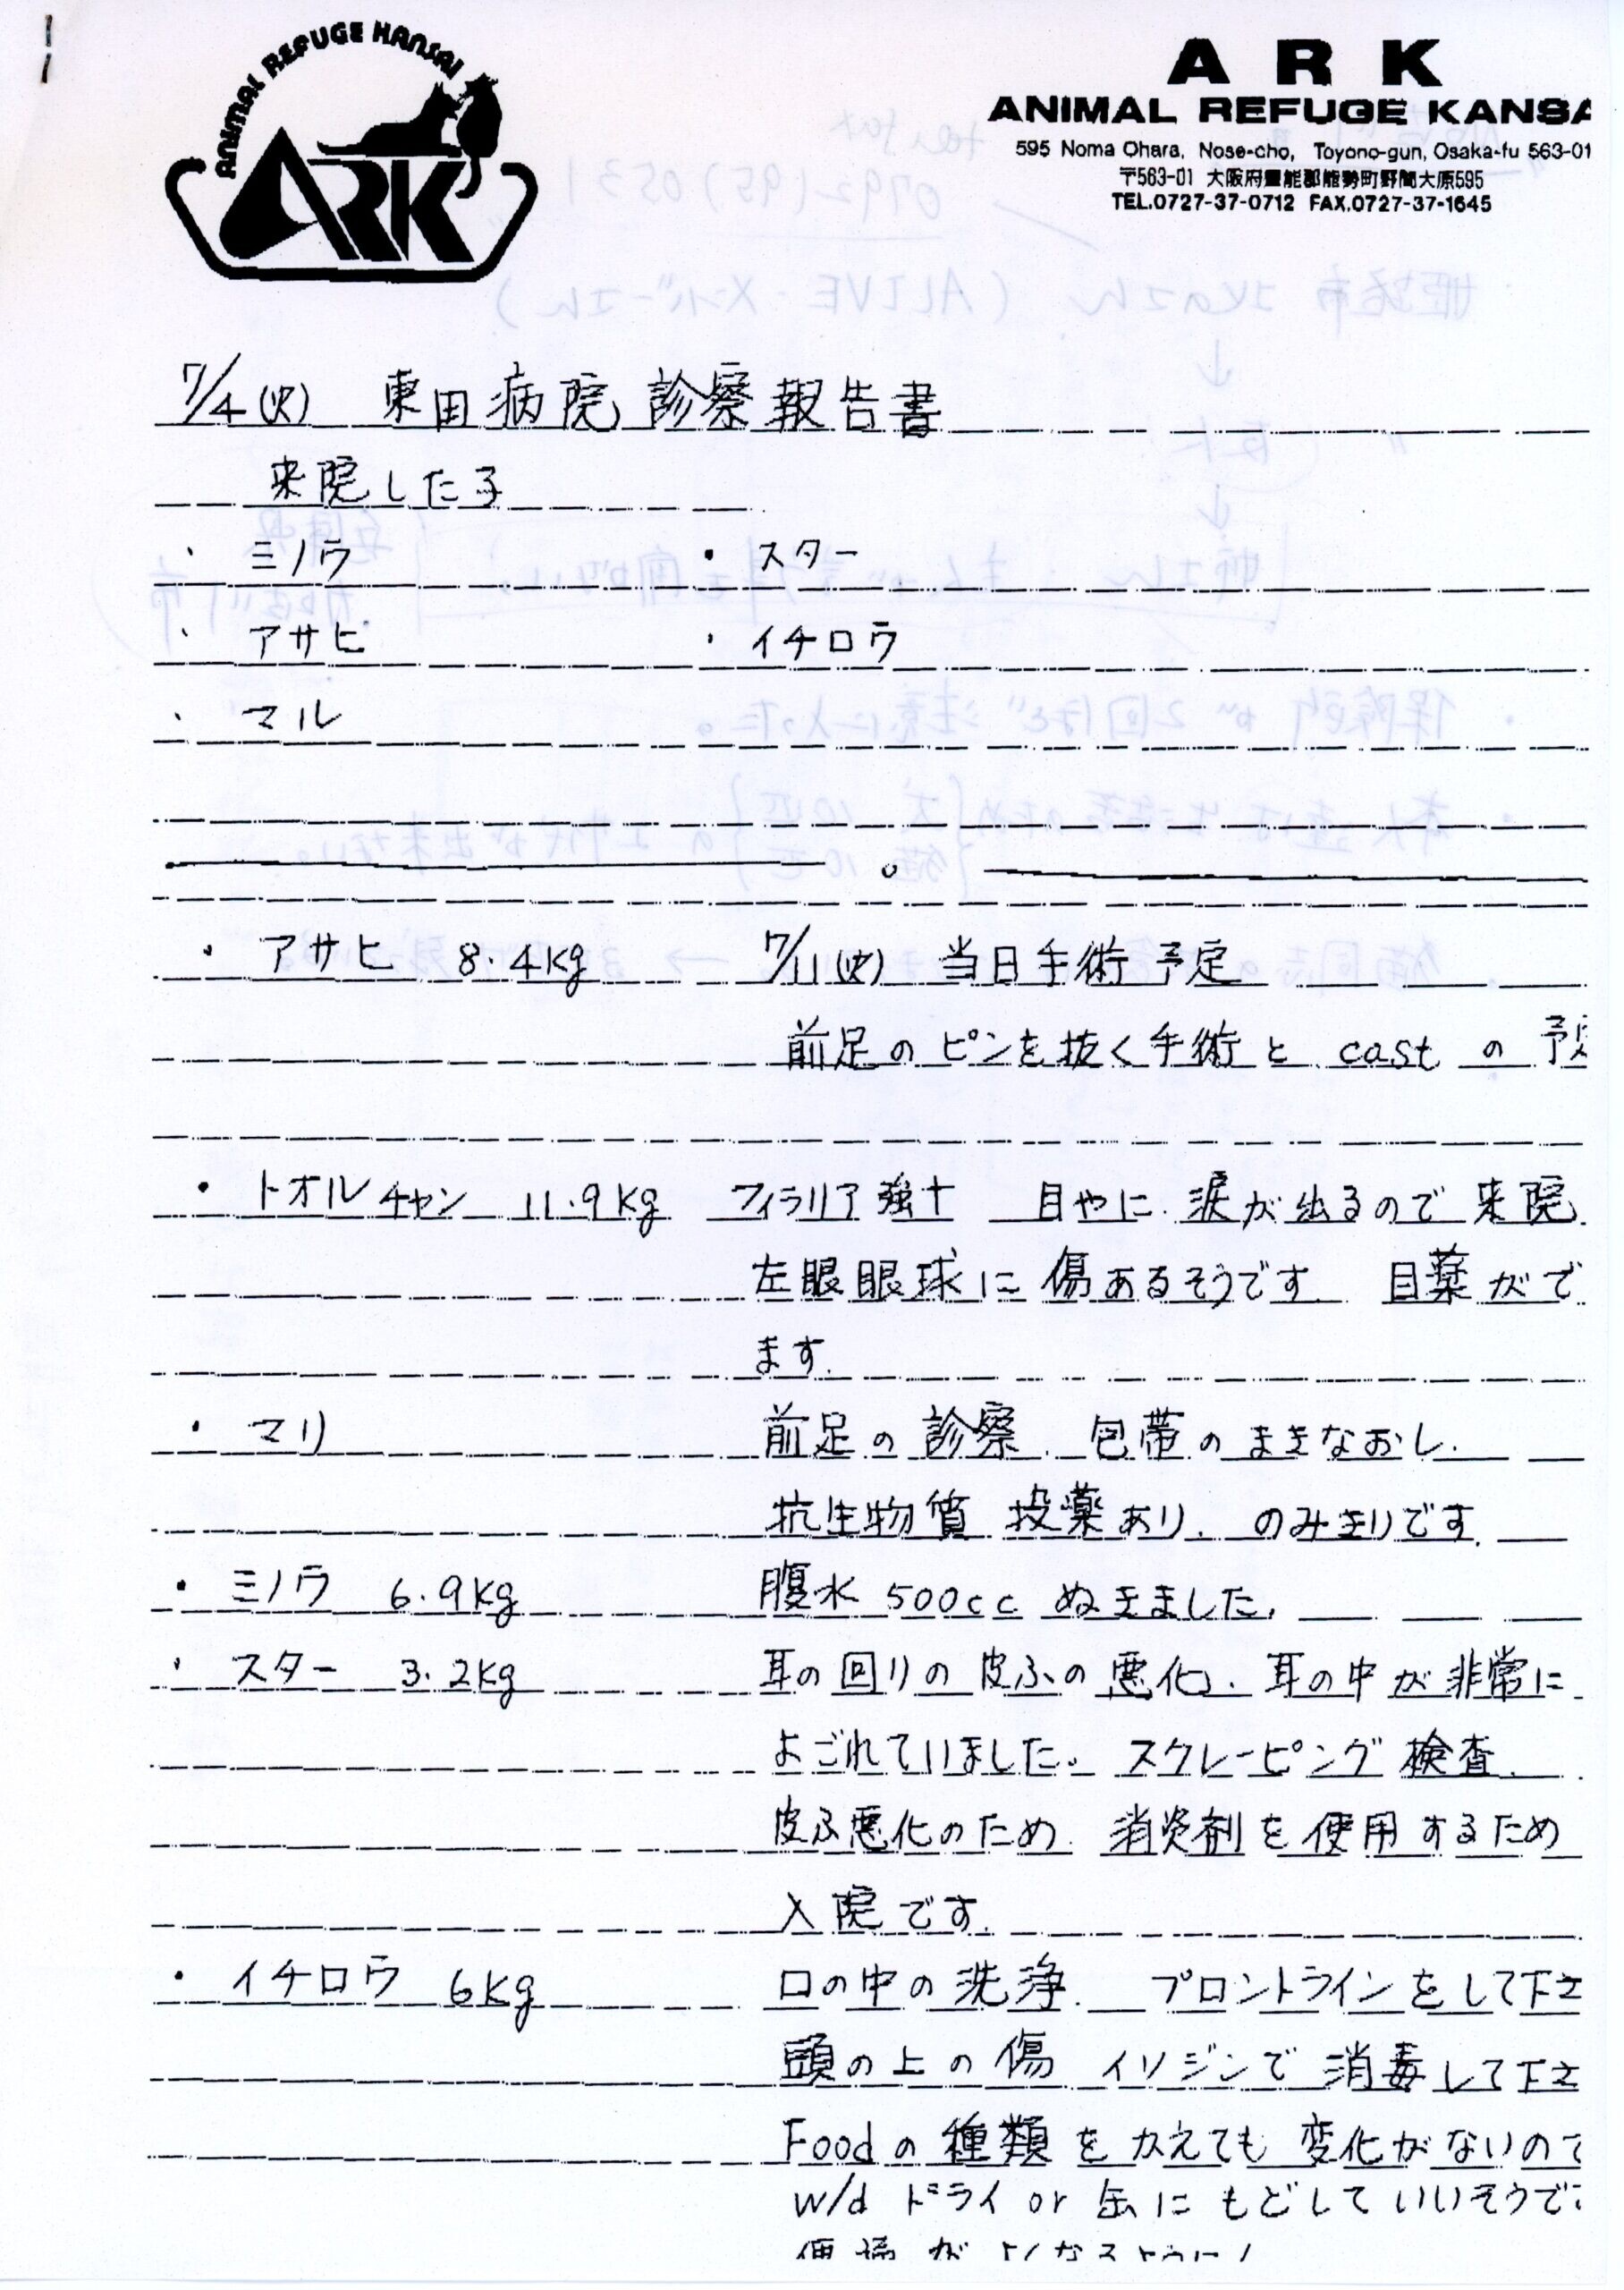 ANIMAL REFUGE KANSAI
ARK
ARK
ANIMAL REFUGE KANSA
595 Noma Ohara, Nose-cho, Toyono-gun, Osaka-fu 563-01
〒563-01 大阪府豊能郡能勢町野間大原595
TEL.0727-37-0712 FAX.0727-37-1645
7/4(火) 東田病院診察報告書
来院した子
・ミノウ ・スター
・アサヒ ・イチロウ
・マル
・アサヒ 8.4kg 7/11(火) 当日手術予定
前足のピンを抜く手術と cast の予定
・トオルチャン 11.9kg フィラリア強+ 目やに.涙が出るので来院.
左眼眼球に傷あるそうです. 目薬がで
ます.
・マリ 前足の診察. 包帯のまきなおし.
抗生物質 投薬あり. のみきりです.
・ミノウ 6.9kg 腹水 500cc ぬきました.
・スター 3.2kg 耳の回りの皮ふの悪化. 耳の中が非常に
よごれていました。スクレーピング検査.
皮ふ悪化のため. 消炎剤を使用するため
入院です.
・イチロウ 6kg 口の中の洗浄. フロントラインをして下さ
頭の上の傷 イソジンで消毒して下さ
Foodの種類をかえても変化がないので
w/d ドライ or 缶にもどしていいそうで